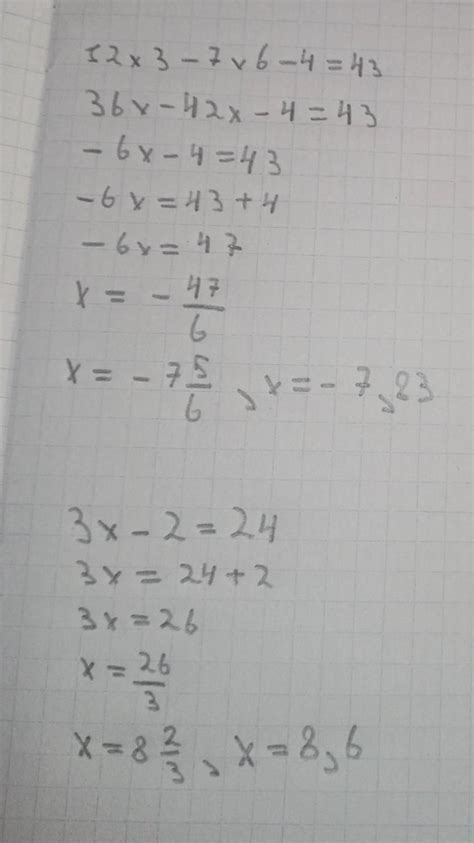 12x3-7x6-4=43
36x-42x-4=43
-6x-4=43
-6x=43+4
-6x=47
x=-47/6
x=-7 5/6, x=-7,83
3x-2=24
3x=24+2
3x=26
x=26/3
x=8 2/3, x=8,6